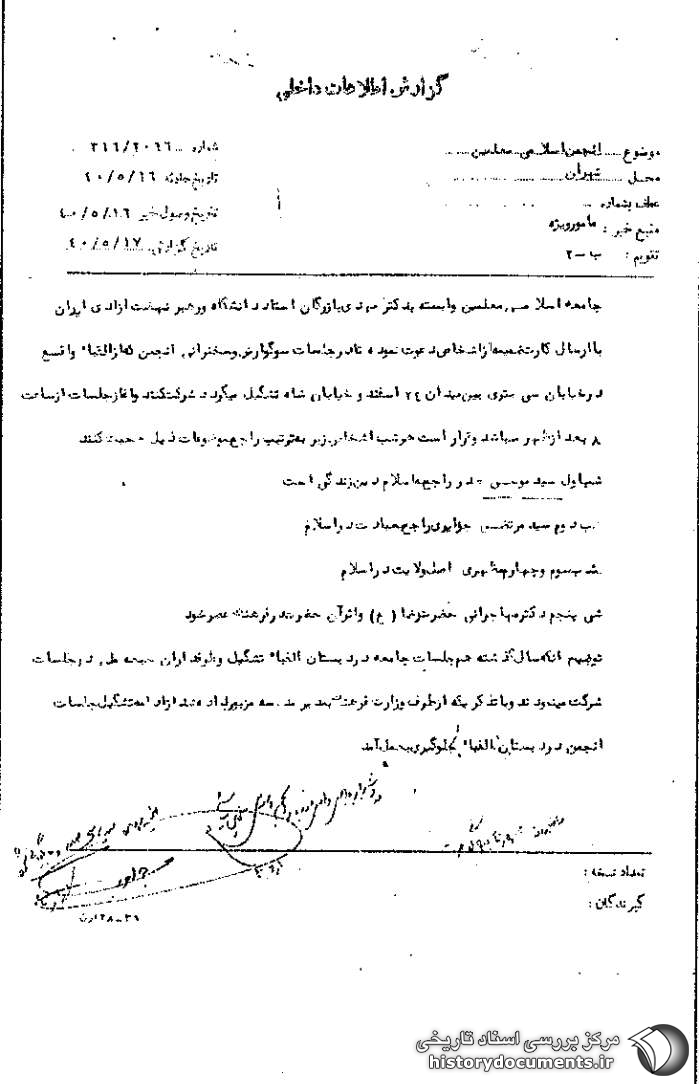 گزارش اطلاعات داخلی
موضوع انجمن اسلامی معلمین
محل تهران
عطف بشماره
منبع خبر : مامورویژه
تقویم : ب-۲
شماره ۳۱۶/۲۰۶۶
تاریخ حادثه ۴۰/۵/۱۶
تاریخ وصول خبر ۴۰/۵/۱۶
تاریخ گزارش ۴۰/۵/۱۷
جامعه اسلامی معلمین وابسته بدکتر مهدی بازرگان استاد دانشگاه ورهبر نهضت ازادی ایران
با ارسال کارت ضمیمه از اشخاص دعوت نموده تا در جلسات سوگواری وسخنرانی انجمن که از الفباء واقع
در خیابان سی متری بین میدان ۲۴ اسفند و خیابان شاه تشکیل میگردد شرکت کنند واغاز جلسات از ساعت
۸ بعد ازظهر میباشد وقرار است هرشب اشخاص زیر بترتیب راجع بموضوعات ذیل صحبت کنند
شب اول سید موسی صدر راجع به اسلام دین زندگی است
شب دوم سید مرتضی جزایری راجع بعبادت در اسلام
شب سوم وچهارم مطهری اصل ولایت در اسلام
شب پنجم دکتر مهاجرانی حضرت رضا (ع) واثر آن حضرت در فرهنگ عصر خود
توضیح انکه سال گذشته هم جلسات جامعه در دبستان الفباء تشکیل وطرفداران جبهه ملی در جلسات
شرکت مینمودند وبا تذکر یکه ازطرف وزارت فرهنگ بمدیر مدرسه مزبور داده شد از ادامه تشکیل جلسات
انجمن در دبستان الفباء جلوگیری بعمل آمد
تعداد نسخه :
گیرندگان :
مرکز بررسی اسناد تاریخی
historydocuments.ir